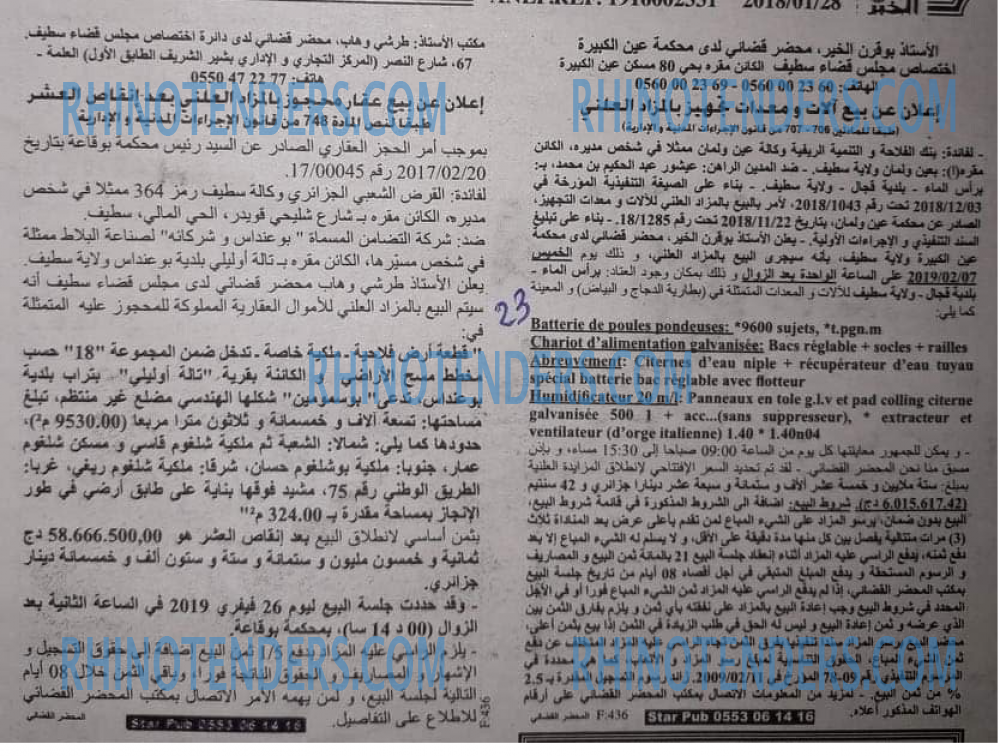 ANEP.REF: 1916002331 2018/01/28 الخبر
الأستاذ بوقرن الخير، محضر قضائي لدى محكمة عين الكبيرة
اختصاص مجلس قضاء سطيف الكائن مقره بحي 80 مسكن عين الكبيرة
الهاتف: 60 23 00 0560 - 69 23 00 0560
إعلان عن بيع آلات ومعدات تجهيز بالمزاد العلني
(طبقا للمادتين 706، 707 من قانون الإجراءات المدنية والإدارية)
- لفائدة: بنك الفلاحة و التنمية الريفية وكالة عين ولمان ممثلا في شخص مديره، الكائن
مقره(ا): بعين ولمان ولاية سطيف. - ضد المدين الراهن: عيشور عبد الحكيم بن محمد، بـ:
برأس الماء - بلدية قجال - ولاية سطيف. - بناء على الصيغة التنفيذية المؤرخة في
2018/12/03 تحت رقم 2018/1043، لأمر بالبيع بالمزاد العلني للآلات و معدات التجهيز،
الصادر عن محكمة عين ولمان، بتاريخ 2018/11/22 تحت رقم 18/1285. - بناء على تبليغ
السند التنفيذي و الإجراءات الأولية. - يعلن الأستاذ بوقرن الخير، محضر قضائي لدى محكمة
عين الكبيرة ولاية سطيف، بأنه سيجرى البيع بالمزاد العلني، و ذلك يوم الخميس
2019/02/07 على الساعة الواحدة بعد الزوال و ذلك بمكان وجود العتاد: برأس الماء -
بلدية قجال - ولاية سطيف للآلات و المعدات المتمثلة في (بطارية الدجاج و البياض) و المعينة
كما يلي:
Batterie de poules pondeuses: *9600 sujets, *t.pgn.m
Chariot d'alimentation galvanisée: Bacs réglable + socles + railles
Abreuvement: Citernes d'eau niple + récupérateur d'eau tuyau
spécial batterie bac réglable avec flotteur
Humidificateur 2/m/l: Panneaux en tole g.l.v et pad colling citerne
galvanisée 500 1 + acc...(sans suppresseur), * extracteur et
ventilateur (d'orge italienne) 1.40 * 1.40n04
- و يمكن للجمهور معاينتها كل يوم من الساعة 09:00 صباحا إلى 15:30 مساء، و بإذن
مسبق منا نحن المحضر القضائي. - لقد تم تحديد السعر الإفتتاحي لإنطلاق المزايدة العلنية
بمبلغ: ستة ملايين و خمسة عشر ألاف و ستمائة و سبعة عشر دينارا جزائري و 42 سنتيم
(6.015.617.42 دج). شروط البيع: إضافة الى الشروط المذكورة في قائمة شروط البيع،
البيع بدون ضمان، يرسو المزاد على الشيء المباع لمن تقدم بأعلى عرض بعد المناداة ثلاث
(3) مرات متتالية يفصل بين كل منها مدة دقيقة على الأقل، و لا يسلم له الشيء المباع إلا بعد
دفع ثمنه، يدفع الراسي عليه المزاد أثناء إنعقاد جلسة البيع 21 بالمائة ثمن البيع و المصاريف
و الرسوم المستحقة و يدفع المبلغ المتبقي في أجل أقصاه 08 أيام من تاريخ جلسة البيع
بمكتب المحضر القضائي، إذا لم يدفع الراسي عليه المزاد ثمن الشيء المباع فورا أو في الأجل
المحدد في شروط البيع وجب إعادة البيع بالمزاد على نفقته بأي ثمن و يلزم بفارق الثمن بين
الذي عرضه و ثمن إعادة البيع و ليس له الحق في طلب الزيادة في الثمن إذا بيع بثمن أعلى،
ثمن الشيء المباع، الحقوق النسبية لمبلغ المزاد و الأتعاب محددة في
التنفيذي 09-78 المؤرخ في 2009/02/11. التسجيل المقدرة بـ 2.5
% من ثمن البيع. - لمزيد من المعلومات الاتصال بمكتب المحضر القضائي على أرقام
الهواتف المذكور أعلاه.
المحضر القضائي F:436 Star Pub 0553 06 14 16
مكتب الأستاذ: طرشي وهاب، محضر قضائي لدى دائرة اختصاص مجلس قضاء سطيف.
67، شارع النصر (المركز التجاري و الإداري بشير الشريف الطابق الأول) العلمة -
هاتف: 77 22 47 0550
إعلان عن بيع عقار محجوز بالمزاد العلني بعد إنقاص العشر
طبقا لنص المادة 748 من قانون الإجراءات المدنية والإدارية
بموجب أمر الحجز العقاري الصادر عن السيد رئيس محكمة بوقاعة بتاريخ
2017/02/20 رقم 17/00045.
لفائدة: القرض الشعبي الجزائري وكالة سطيف رمز 364 ممثلا في شخص
مديره، الكائن مقره بـ شارع شليحي قويدر، الحي المالي، سطيف.
ضد: شركة التضامن المسماة " بوعنداس و شركائه" لصناعة البلاط ممثلة
في شخص مسيّرها، الكائن مقره بـ تالة أوليلي بلدية بوعنداس ولاية سطيف.
يعلن الأستاذ طرشي وهاب محضر قضائي لدى مجلس قضاء سطيف أنه
سيتم البيع بالمزاد العلني للأموال العقارية المملوكة للمحجوز عليه المتمثلة
في:
"قطعة أرض فلاحية ـ ملكية خاصة ـ تدخل ضمن المجموعة "18" حسب
مخطط مسح الأراضي و الكائنة بقرية "تالة أوليلي" بتراب بلدية
بوعنداس، تدعى شكلها الهندسي مضلع غير منتظم، تبلغ
مساحتها: تسعة آلاف و خمسمائة و ثلاثون مترا مربعا (9530.00 م²)،
حدودها كما يلي: شمالا: الشعبة ثم ملكية شلغوم قاسي و مسكن شلغوم
عمار، جنوبا: ملكية بوشلغوم حسان، شرقا: ملكية شلغوم ريغي، غربا:
الطريق الوطني رقم 75، مشيد فوقها بناية على طابق أرضي في طور
الإنجاز بمساحة مقدرة بـ 324.00 م²"
بثمن أساسي لانطلاق البيع بعد إنقاص العشر هو 58.666.500,00 دج
ثمانية و خمسون مليون و ستمائة و ستة و ستون ألف و خمسمائة دينار
جزائري.
- وقد حددت جلسة البيع ليوم 26 فيفري 2019 في الساعة الثانية بعد
الزوال (00 د 14 سا)، بمحكمة بوقاعة
- يلزم الراسي عليه المزاد بدفع 1/5 ثمن البيع إضافة إلى حقوق التسجيل و
الإشهار و المصاريف و الحقوق الثابتة فورا، و باقي الثمن خلال 08 أيام
التالية لجلسة البيع، و لمن يهمه الأمر الاتصال بمكتب المحضر القضائي
للاطلاع على التفاصيل.
المحضر القضائي Star Pub 0553 06 14 16 F:436
23
RHINOTENDERS.COM
RHINOTENDERS.COM
RHINOTENDERS.COM
RHINOTENDERS.COM
RHINOTENDERS.COM